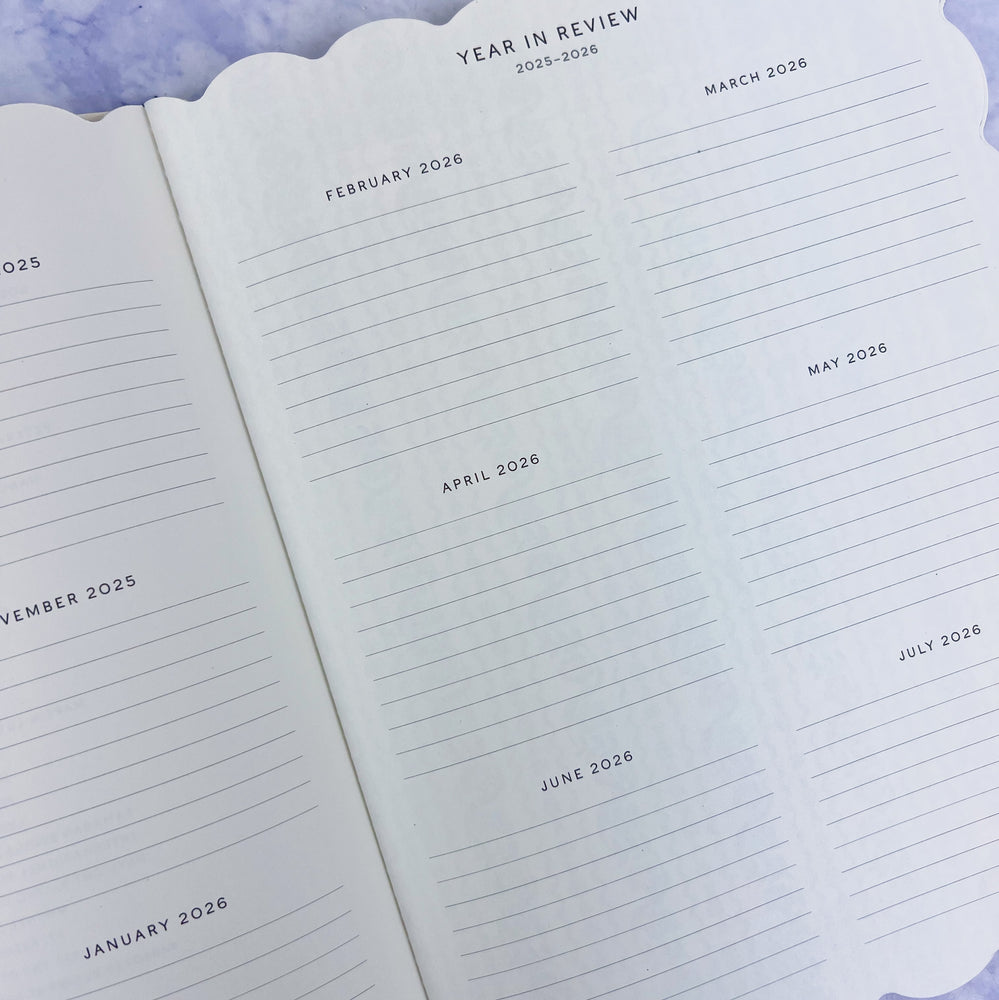 025
VEMBER 2025
JANUARY 2026
YEAR IN REVIEW
2025–2026
FEBRUARY 2026
MARCH 2026
APRIL 2026
MAY 2026
JUNE 2026
JULY 2026